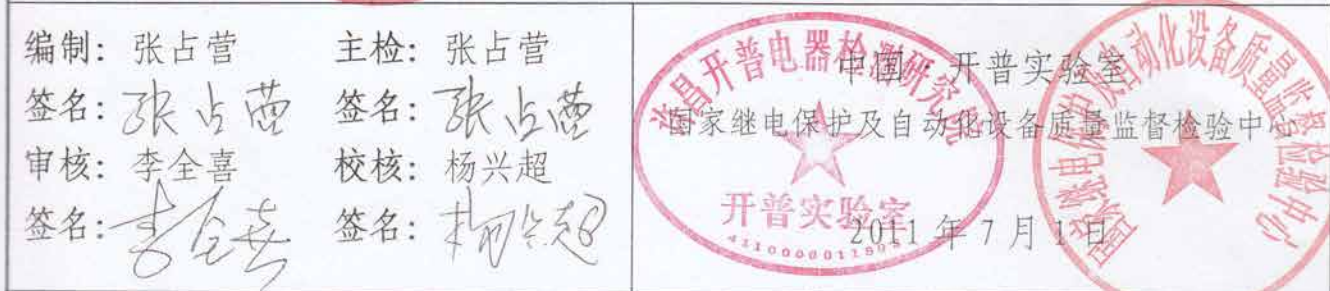 编制：张占营 主检：张占营
签名：张占营 签名：张占营
审核：李全喜 校核：杨兴超
签名：李全喜 签名：杨兴超
中国·开普实验室
国家继电保护及自动化设备质量监督检验中心
2011年7月1日
许昌开普电器检测研究院
开普实验室
国家继电保护及自动化设备质量监督检验中心